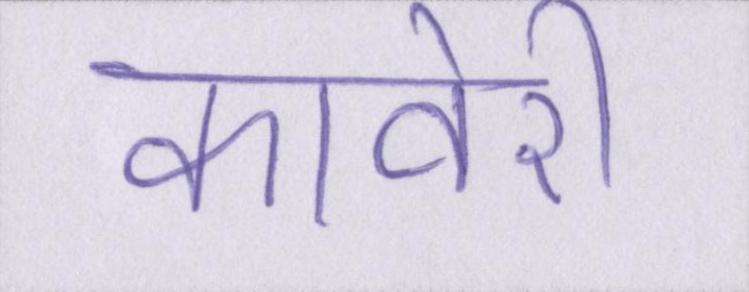 कावेरी